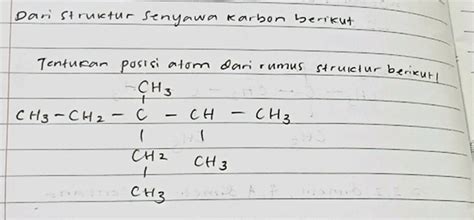 Dari Struktur Senyawa Karbon berikut
Tentukan posisi atom dari rumus struktur berikut!
CH3
CH3 - CH2 - C - CH - CH3
CH2 CH3
CH3